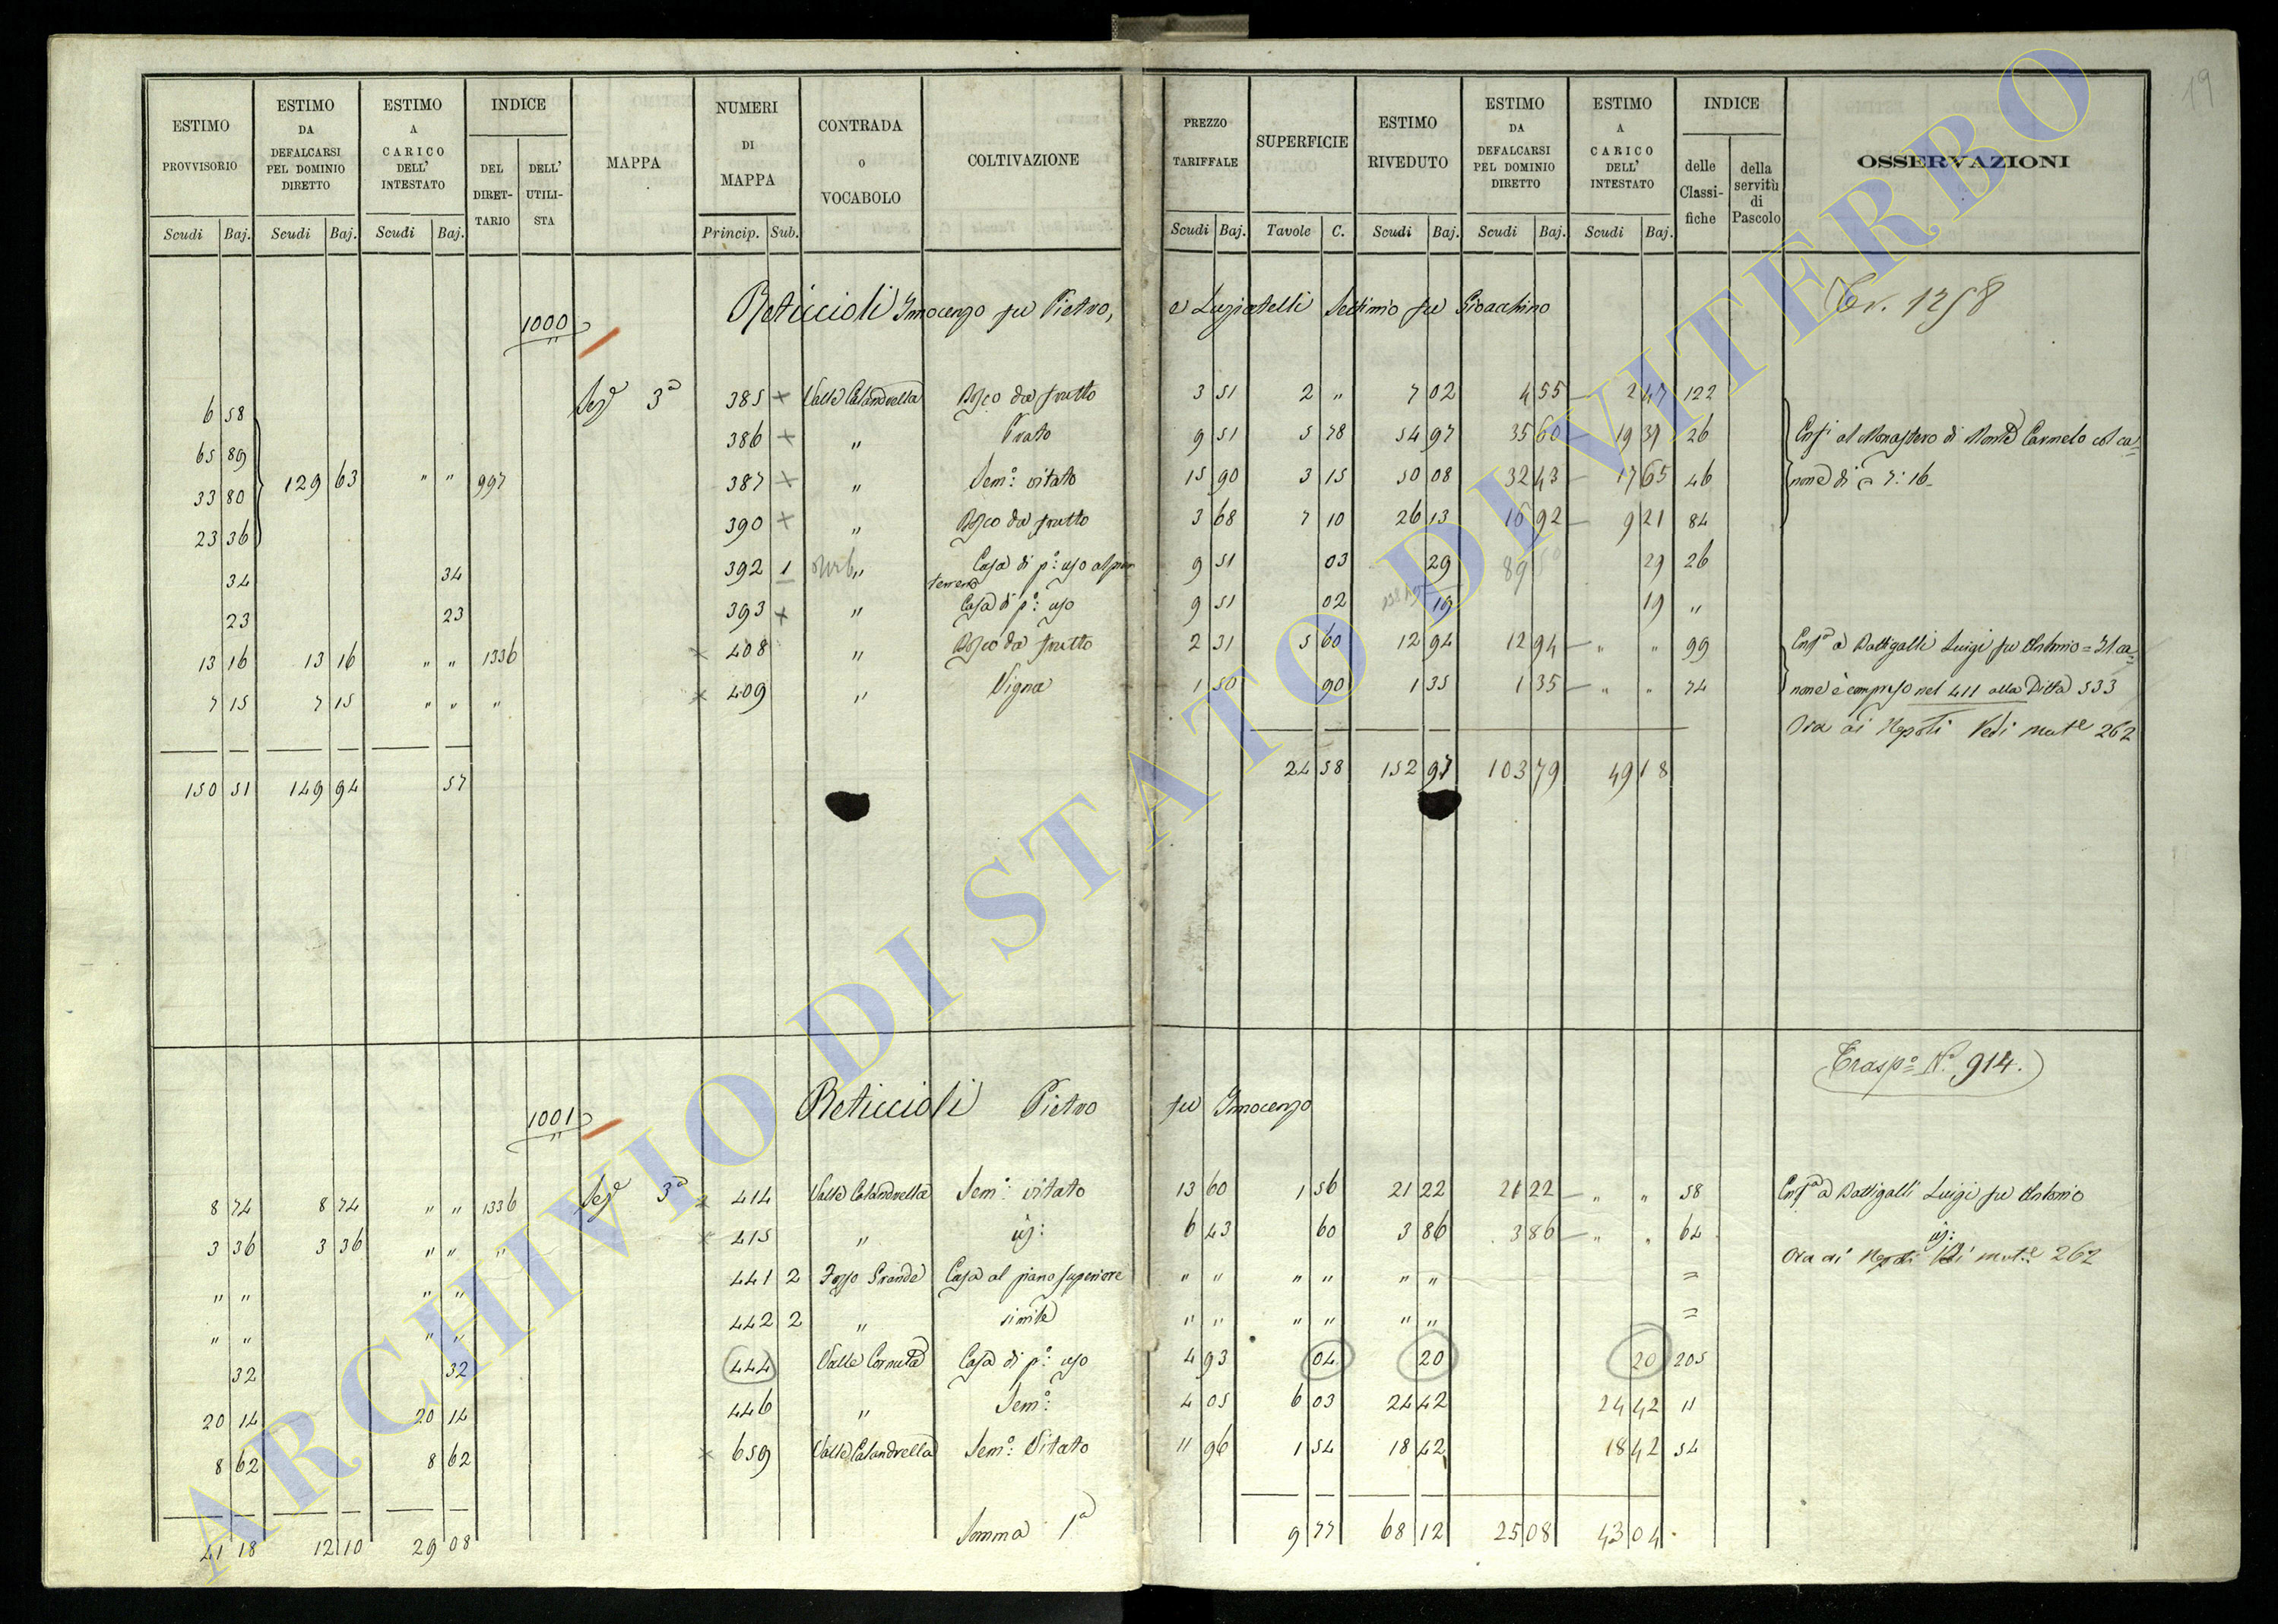 19
ESTIMO PROVVISORIO Scudi Baj. ESTIMO DA DEFALCARSI PEL DOMINIO DIRETTO Scudi Baj. ESTIMO A CARICO DELL' INTESTATO Scudi Baj. INDICE DEL DIRETTARIO DELL' UTILISTA MAPPA NUMERI DI MAPPA Princip. Sub. CONTRADA O VOCABOLO COLTIVAZIONE PREZZO TARIFFALE Scudi Baj. SUPERFICIE Tavole C. ESTIMO RIVEDUTO Scudi Baj. ESTIMO DA DEFALCARSI PEL DOMINIO DIRETTO Scudi Baj. ESTIMO A CARICO DELL' INTESTATO Scudi Baj. INDICE delle Classifiche della servitù di Pascolo OSSERVAZIONI
1000 Reticcioli Innocenzo fu Pietro, e Luziatelli Settimio fu Gioacchino 1258
6 58 Sez.e 3a 385 Valle Calandrella Bosco da frutto 3 51 2 " 7 02 4 55 2 47 122
65 89 386 " Prato 9 51 5 78 54 97 35 60 19 37 26 al Monastero di Monte Carmelo col ca=
33 80 129 63 " " 997 387 " Sem.o vitato 15 90 3 15 50 08 32 43 17 65 46 none di 7: 16
23 36 390 " Bosco da frutto 3 68 7 10 26 13 16 92 9 21 84
34 34 392 1 urb " Casa di p.o uso al pian terreno 9 51 03 29 29 26
23 23 393 " Casa di p.o uso 9 51 02 19 19 "
13 16 13 16 " " 1336 408 " Bosco da frutto 2 31 5 60 12 94 12 94 " " 99 a Battigalli Luigi fu Antonio = Il ca=
7 15 7 15 " " " 409 " Vigna 1 50 90 1 35 1 35 " " 74 none è compreso nel 411 alla Ditta 533
Ora ai Nepoti Vedi mat.e 262
150 51 149 94 57 24 58 152 97 103 79 49 18
Trasp.o N.o 914.
1001 Reticcioli Pietro fu Innocenzo
8 74 8 74 " " 1336 Sez.e 3a 414 Valle Calandrella Sem.o vitato 13 60 1 56 21 22 21 22 " " 58 a Battigalli Luigi fu Antonio
3 36 3 36 " " " 415 " 6 43 60 3 86 3 86 " " 64
Ora ai Nepoti Vedi mat.e 262
" " " " 441 2 Fosso Grande Casa al piano superiore " " " " " " =
" " " " 442 2 " simile " " " " " " =
32 32 444 Valle Cornuta Casa di p.o uso 4 93 04 20 20 205
20 14 20 14 446 " Sem.o 4 05 6 03 24 42 24 42 11
8 62 8 62 659 Valle Calandrella Sem.o Vitato 11 96 1 54 18 42 18 42 54
41 18 12 10 29 08 Somma 1a 9 77 68 12 25 08 43 04
ARCHIVIO DI STATO DI VITERBO